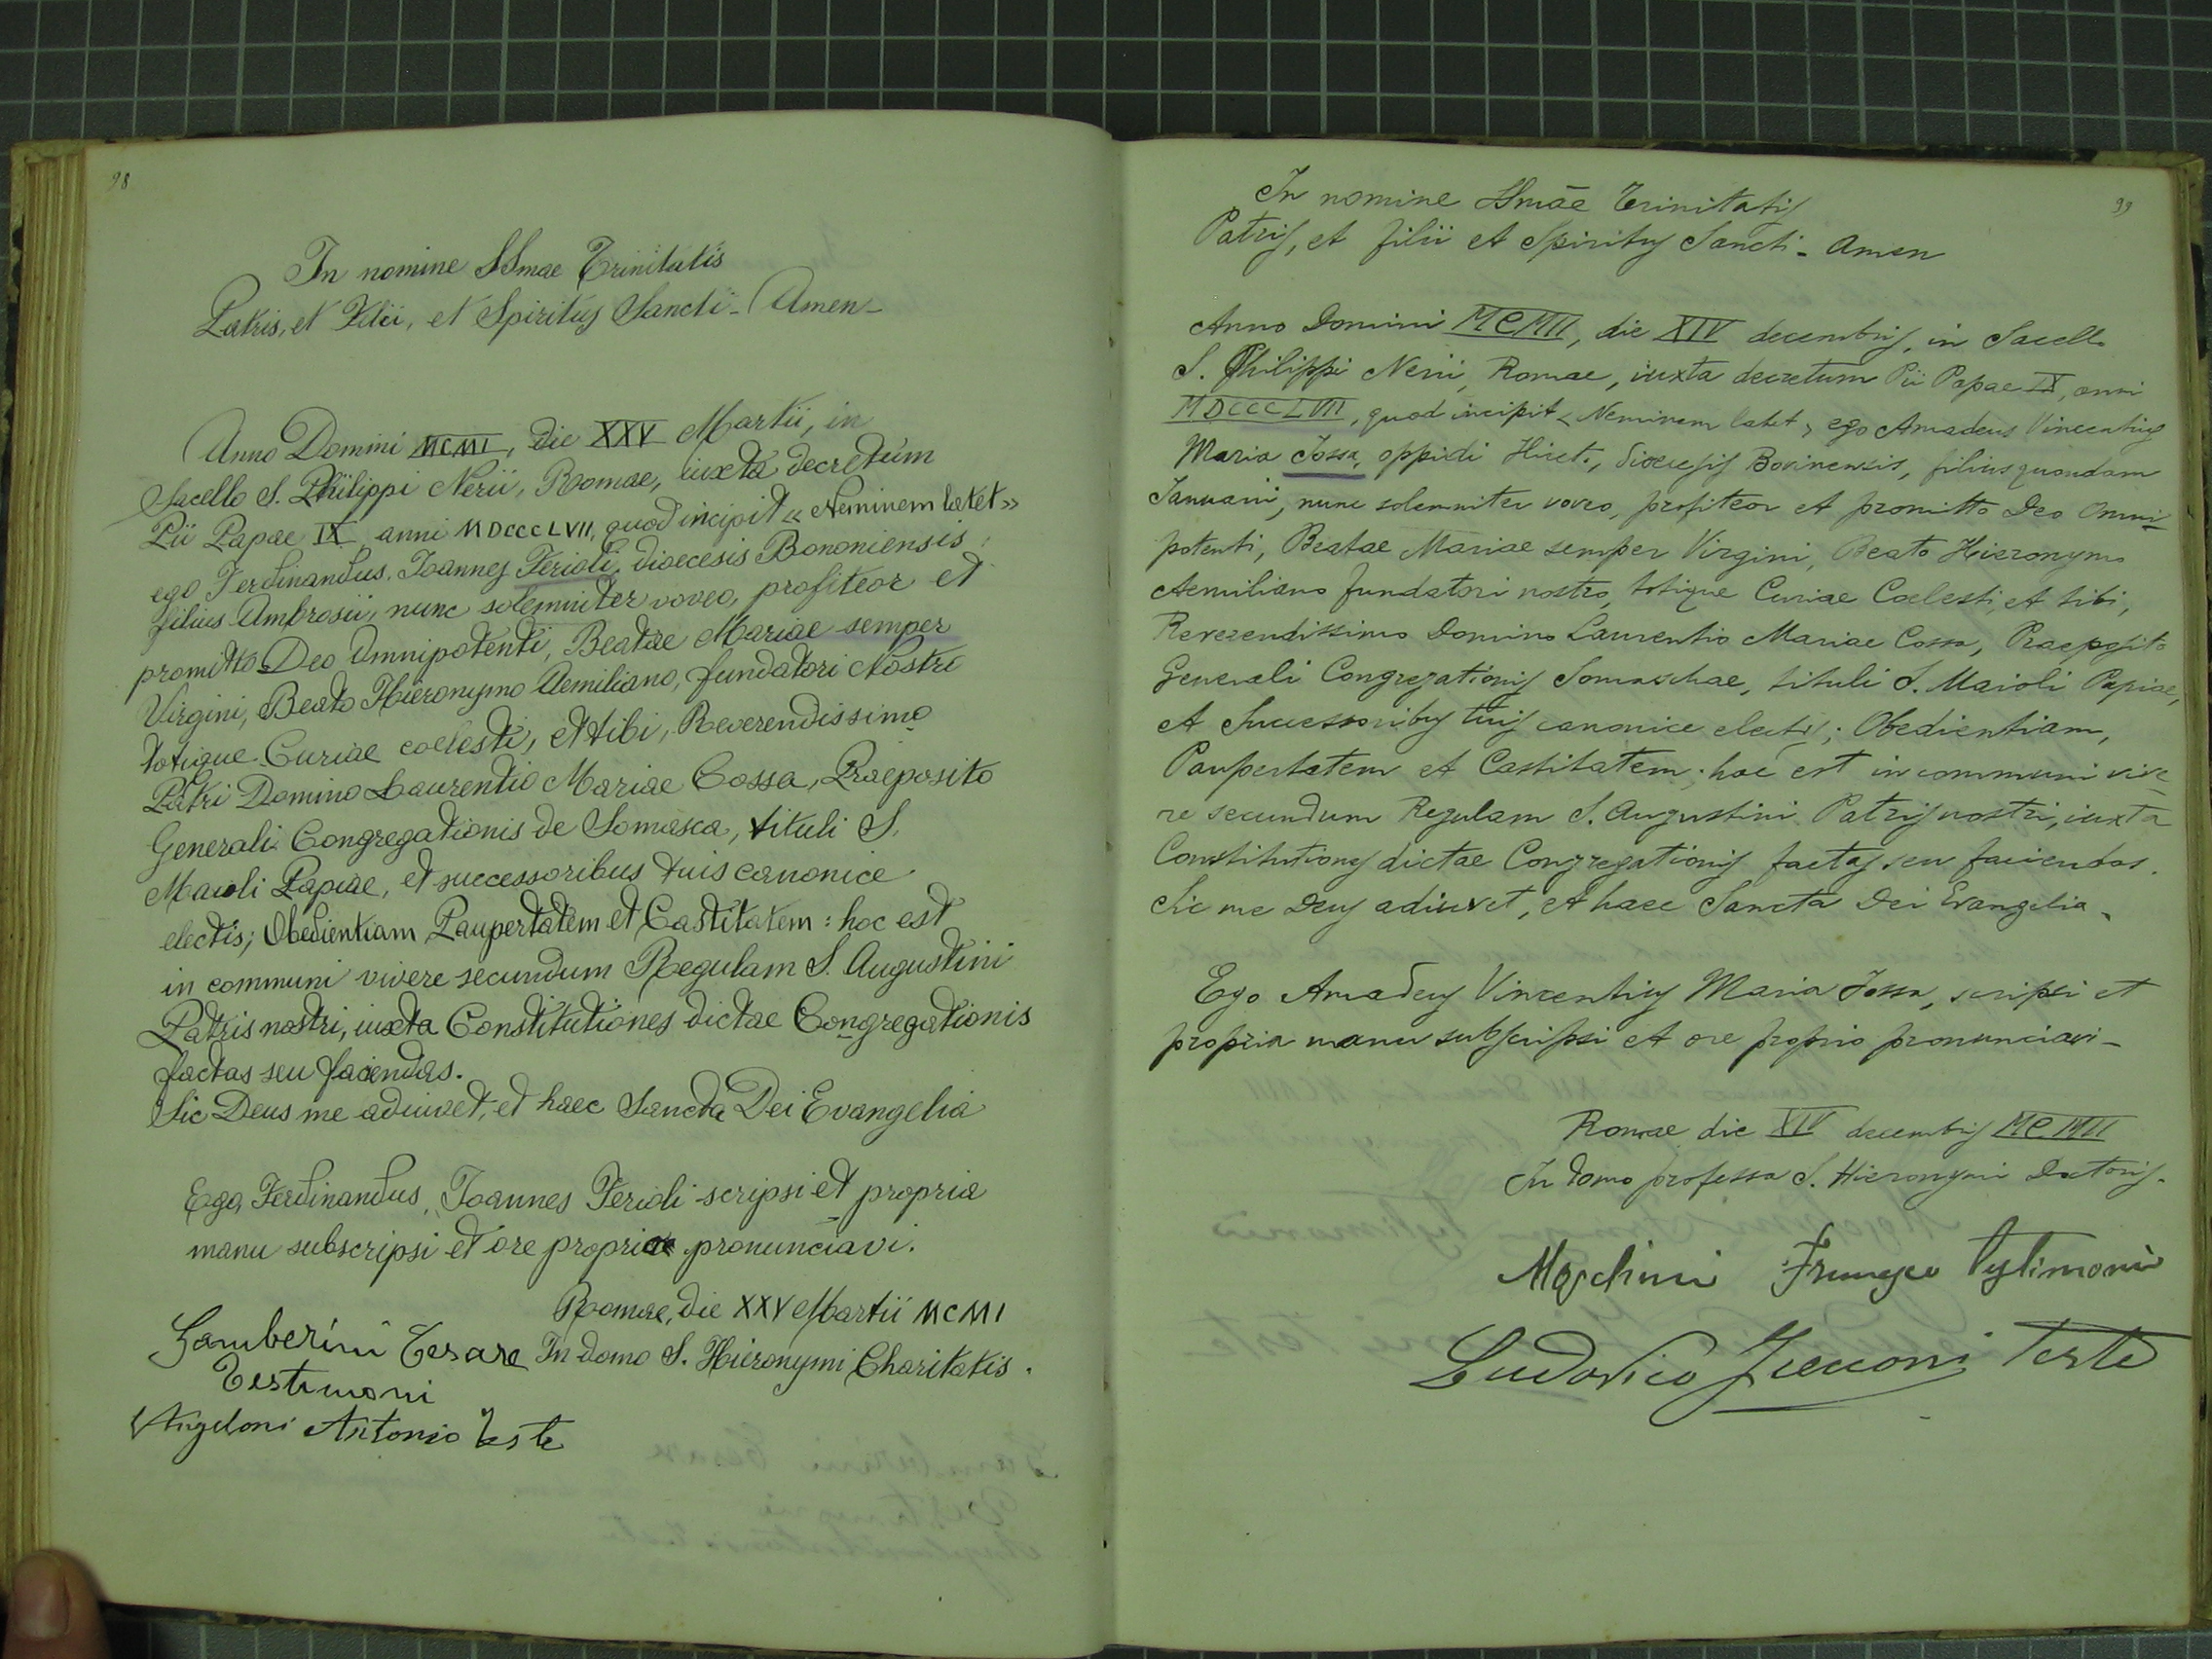 98
In nomine SSmae Trinitatis
Patris, et Filii, et Spiritus Sancti - Amen -
Anno Domini MCMI, die XXV Martii, in
Sacello S. Philippi Nerii, Romae, iuxta decretum
Pii Papae IX, anni MDCCCLVII, quod incipit « Neminem latet »
ego Ferdinandus, Joannes Ferioli, dioecesis Bononiensis,
filius Ambrosii, nunc solemniter voveo, profiteor et
promitto Deo Omnipotenti, Beatae Mariae semper
Virgini, Beato Hieronymo Aemiliano, fundatori Nostro
totique Curiae coelesti, et tibi, Reverendissimo
Patri Domino Laurentio Mariae Cossa, Praeposito
Generali Congregationis de Somasca, tituli S.
Maioli Papiae, et successoribus tuis canonice
electis; Obedientiam Paupertatem et Castitatem : hoc est
in communi vivere secundum Regulam S. Augustini
Patris nostri, iuxta Constitutiones dictae Congregationis
factas seu faciendas.
Sic Deus me adiuvet, et haec Sancta Dei Evangelia
Ego, Ferdinandus, Joannes Ferioli scripsi et propria
manu subscripsi et ore proprio pronunciavi.
Romae, die XXV Martii MCMI
In domo S. Hieronymi Charitatis.
Gamberini Cesare
Testimoni
Angeloni Antonio Teste
99
In nomine SSmāe Trinitatis
Patris, et filii et Spiritus Sancti - Amen
Anno Domini MCMII, die XIV decembris, in Sacello
S. Philippi Nerii, Romae, iuxta decretum Pii Papae IX, anni
MDCCCLVII, quod incipit < Neminem latet > ego Amadeus Vincentius
Maria Jossa, oppidi Hiset., dioecesis Bovinensis, filius quondam
Januarii, nunc solemniter voveo, profiteor et promitto Deo Omni-
potenti, Beatae Mariae semper Virgini, Beato Hieronymo
Aemiliano fundatori nostro, totique Curiae Coelesti, et tibi,
Reverendissimo Domino Laurentio Mariae Cossa, Praeposito
Generali Congregationis Somaschae, tituli S. Maioli Papiae,
et Successoribus tuis canonice electis; Obedientiam,
Paupertatem et Castitatem; hoc est in communi vive=
re secundum Regulam S. Augustini Patris nostri, iuxta
Constitutiones dictae Congregationis factas seu faciendas.
Sic me Deus adiuvet, et haec Sancta Dei Evangelia.
Ego Amadeus Vincentius Maria Jossa, scripsi et
propria manu subscripsi et ore proprio pronunciavi -
Romae die XIV decembris MCMII
In domo professa S. Hieronymi Doctoris.
Testimonio
Ludovico Teste